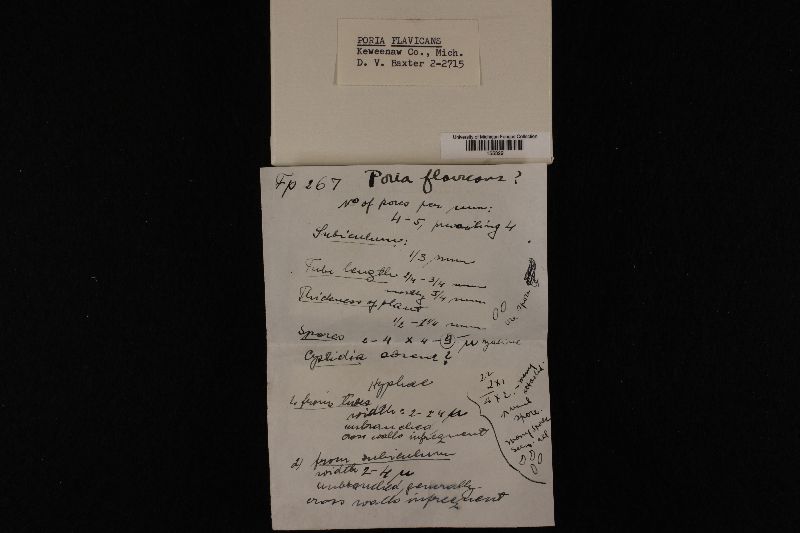 PORIA FLAVICANS
Keweenaw Co., Mich.
D. V. Baxter 2-2715
University of Michigan Fungus Collection
Fp 267 Poria flavicans?
No of pores per mm:
4-5, 4
Subiculum:
1/3 mm
Tube length 2/4 - 3/4 mm
mostly 3/4 mm
Thickness of plant
mm
Spores 2-4 x 4- μ
Cystidia absent?
Hyphae
1. from tubes
width: 2-2 μ
unbranched
cross walls infrequent
2) from subiculum
width 2-4 μ
unbranched generally
cross walls infrequent
one spore
4 x 2. - many
spore.
many spore